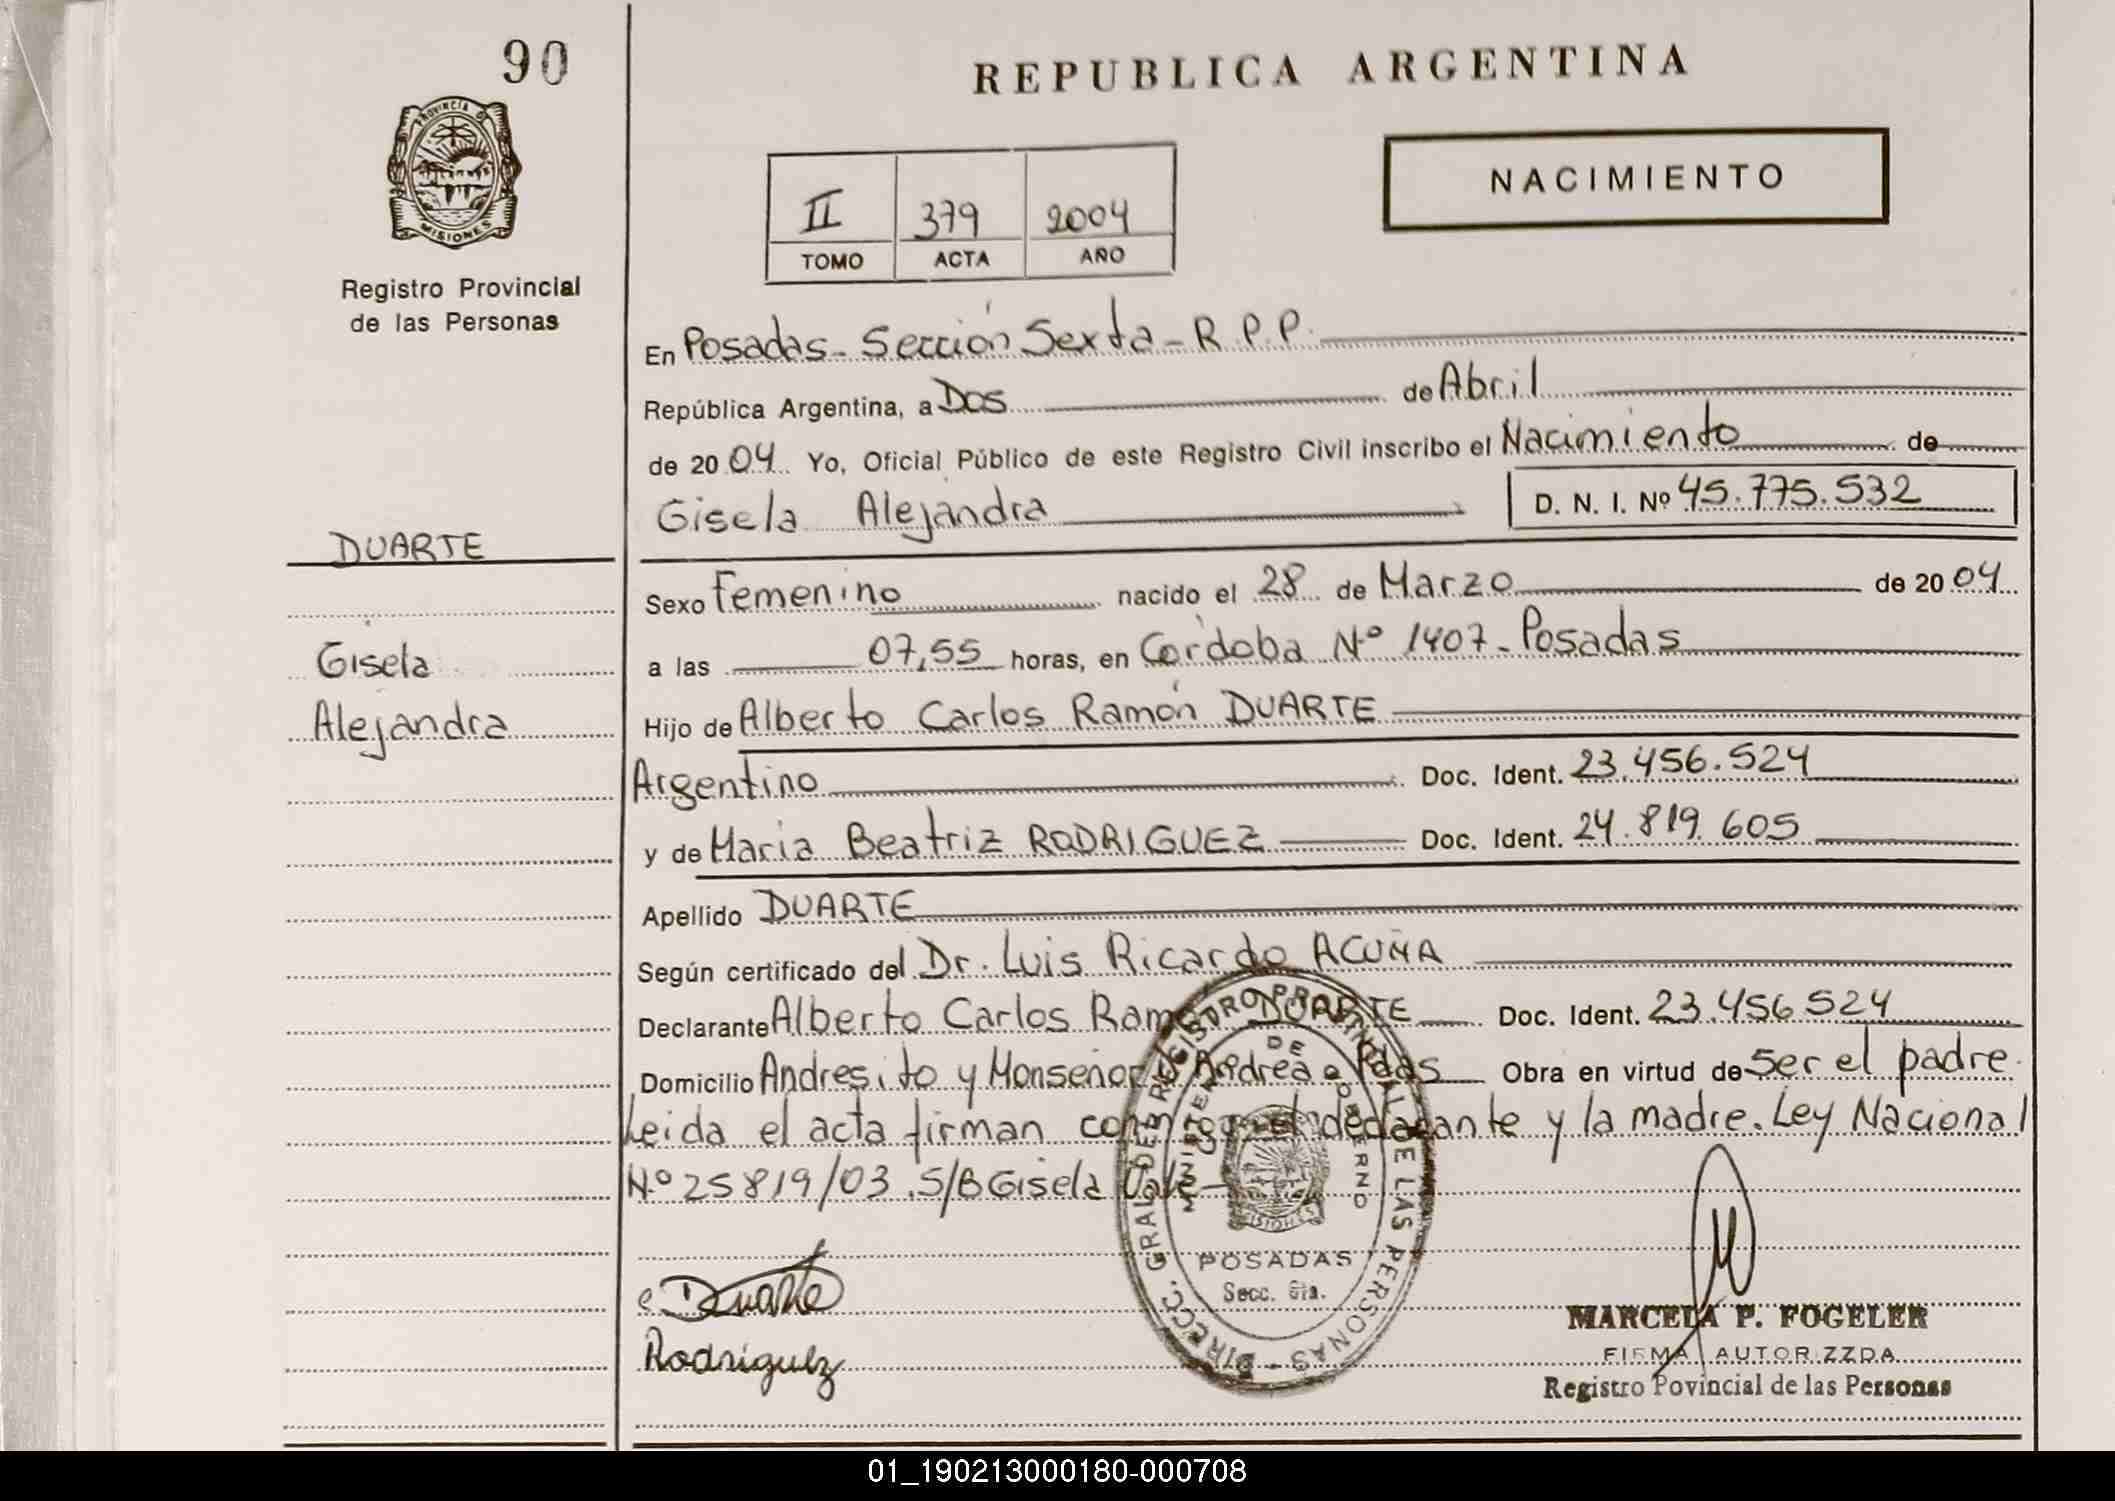 90
REPUBLICA ARGENTINA
PROVINCIA DE
MISIONES
NACIMIENTO
II 379 2004
TOMO ACTA AÑO
Registro Provincial
de las Personas
En Posadas - Sección Sexta - R.P.P.
República Argentina, a Dos de Abril
de 2004 Yo, Oficial Público de este Registro Civil inscribo el Nacimiento de
Gisela Alejandra D. N. I. Nº 45.775.532
DUARTE
Sexo Femenino nacido el 28 de Marzo de 2004
Gisela
a las 07,55 horas, en Córdoba Nº 1407 - Posadas
Alejandra
Hijo de Alberto Carlos Ramón DUARTE
Argentino Doc. Ident. 23.456.524
y de Maria Beatriz RODRIGUEZ Doc. Ident. 24.819.605
Apellido DUARTE
Según certificado del Dr. Luis Ricardo ACUÑA
Declarante Alberto Carlos Ramón DUARTE Doc. Ident. 23.456.524
Domicilio Andresito y Monseñor D'Andrea - Pdas Obra en virtud de Ser el padre.
Leida el acta firman conmigo el declarante y la madre. Ley Nacional
Nº 25819/03. S/B Gisela Vale -
DIRECC. GRAL. DEL REGISTRO PROVINCIAL DE LAS PERSONAS -
MINISTERIO DE GOBIERNO
MISIONES
POSADAS
Secc. 6ta.
Duarte
Rodriguez
MARCELA P. FOGELER
FIRMA AUTORIZZDA
Registro Povincial de las Personas
01_190213000180-000708